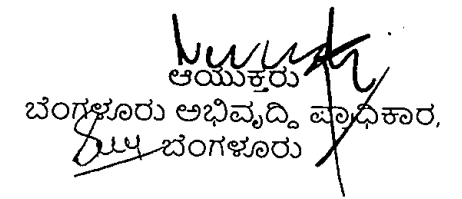 ಆಯುಕ್ತರು
ಬೆಂಗಳೂರು ಅಭಿವೃದ್ಧಿ ಪ್ರಾಧಿಕಾರ,
ಬೆಂಗಳೂರು